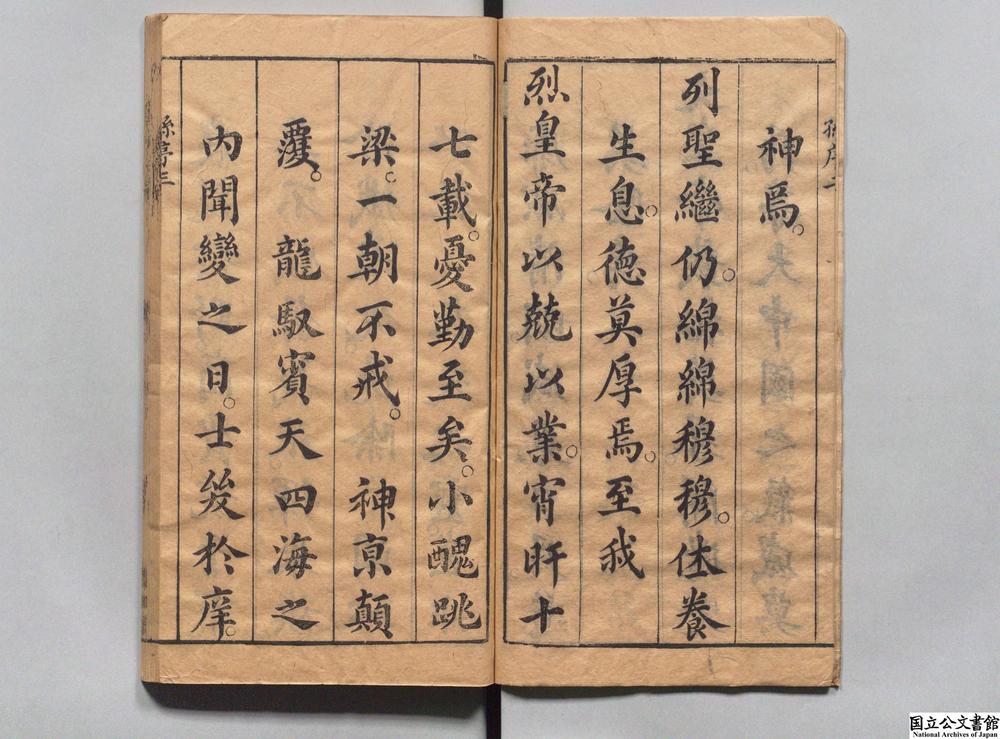 神焉。
列聖繼仍。綿綿穆穆。休養
生息。德莫厚焉。至我
烈皇帝以兢以業。宵旰十
七載。憂勤至矣。小醜跳
梁。一朝不戒。神京顛
覆。龍馭賓天四海之
內聞變之日。士發於庠。
孫序二
孫序三
国立公文書館
National Archives of Japan